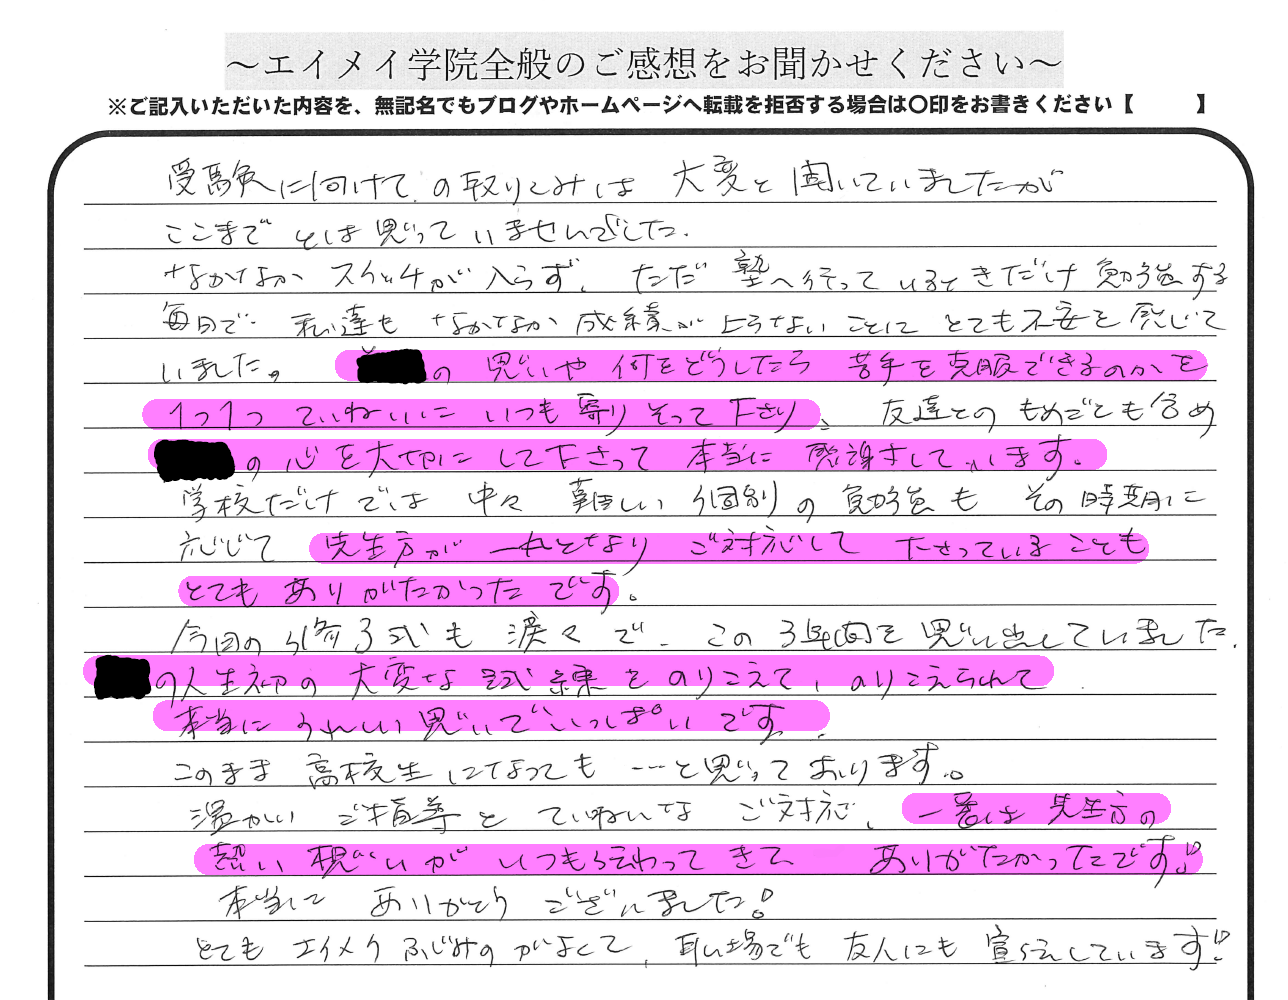 ～エイメイ学院全般のご感想をお聞かせください～
※ご記入いただいた内容を、無記名でもブログやホームページへ転載を拒否する場合は〇印をお書きください【　　　】
受験に向けての取りくみは 大変と聞いていましたが
ここまでとは思っていませんでした。
なかなか スイッチが入らず、ただ 塾へ行っているときだけ 勉強する
毎日で 私達も なかなか 成績が上らないことに とても不安を感じて
いました。 の 思いや 何をどうしたら 苦手を克服できるのかを
1つ1つ ていねいに いつも寄りそって下さり、 友達とのもめごとも含め
の 心を大切にして下さって 本当に 感謝しています。
学校だけでは 中々 難しい 個別の 勉強も その時期に
応じて 先生方が 一丸となり ご対応して 下さっていることも
とても ありがたかったです。
今回の 修了式も 涙々で、この3年間を思い出していました。
の人生初の 大変な 試練を のりこえて、のりこえられて
本当に うれしい思いでいっぱいです。
このまま 高校生になっても …と思っております。
温かい ご指導と ていねいな ご対応、一番は 先生方の
熱い 想いが いつも伝わってきて ありがたかったです!!
本当に ありがとうございました!
とても エイメイ ふじみのがよくて、職場でも 友人にも 宣伝しています!!